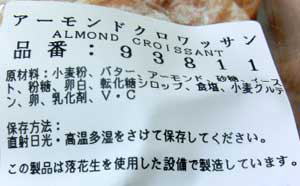 アーモンドクロワッサン
ALMOND CROISSANT
品番：93811
原材料：小麦粉、バター、アーモンド、砂糖、イース
ト、粉糖、卵白、転化糖シロップ、食塩、小麦グルテ
ン、卵、乳化剤、V・C
保存方法：
直射日光・高温多湿をさけて保存してください。
この製品は落花生を使用した設備で製造しています。